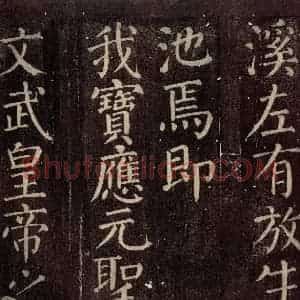 溪左有放生
池焉即
我寶應元聖
文武皇帝